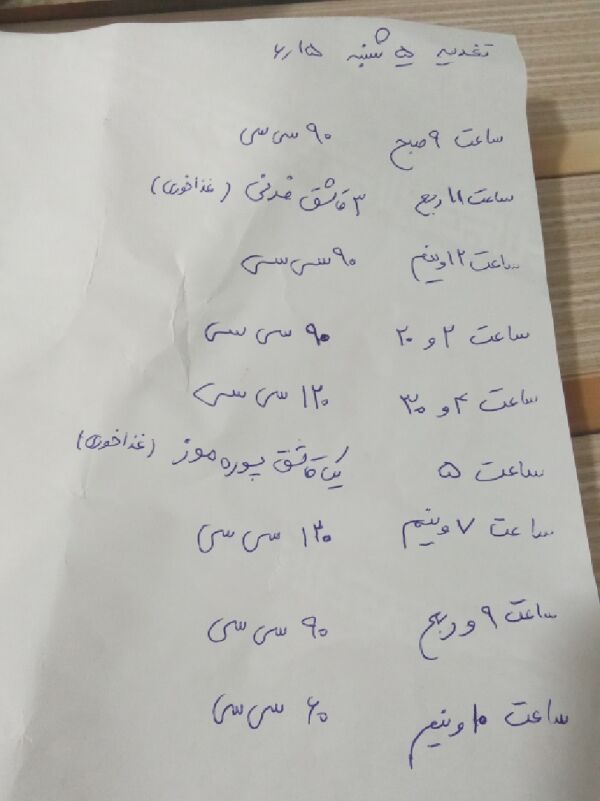 تغذیه ۵ شنبه ۶٫۱۵
ساعت ۹ صبح ۹۰ سی سی
ساعت ۱۱ ربع ۳ قاشق فرنی (غذاخوری)
ساعت ۱۲ ونیم ۹۰ سی سی
ساعت ۲ و ۲۰ ۹۰ سی سی
ساعت ۴ و ۳۰ ۱۲۰ سی سی
ساعت ۵ یک قاشق پوره موز (غذاخوری)
ساعت ۷ ونیم ۱۲۰ سی سی
ساعت ۹ و ربع ۹۰ سی سی
ساعت ۱۰ ونیم ۶۰ سی سی